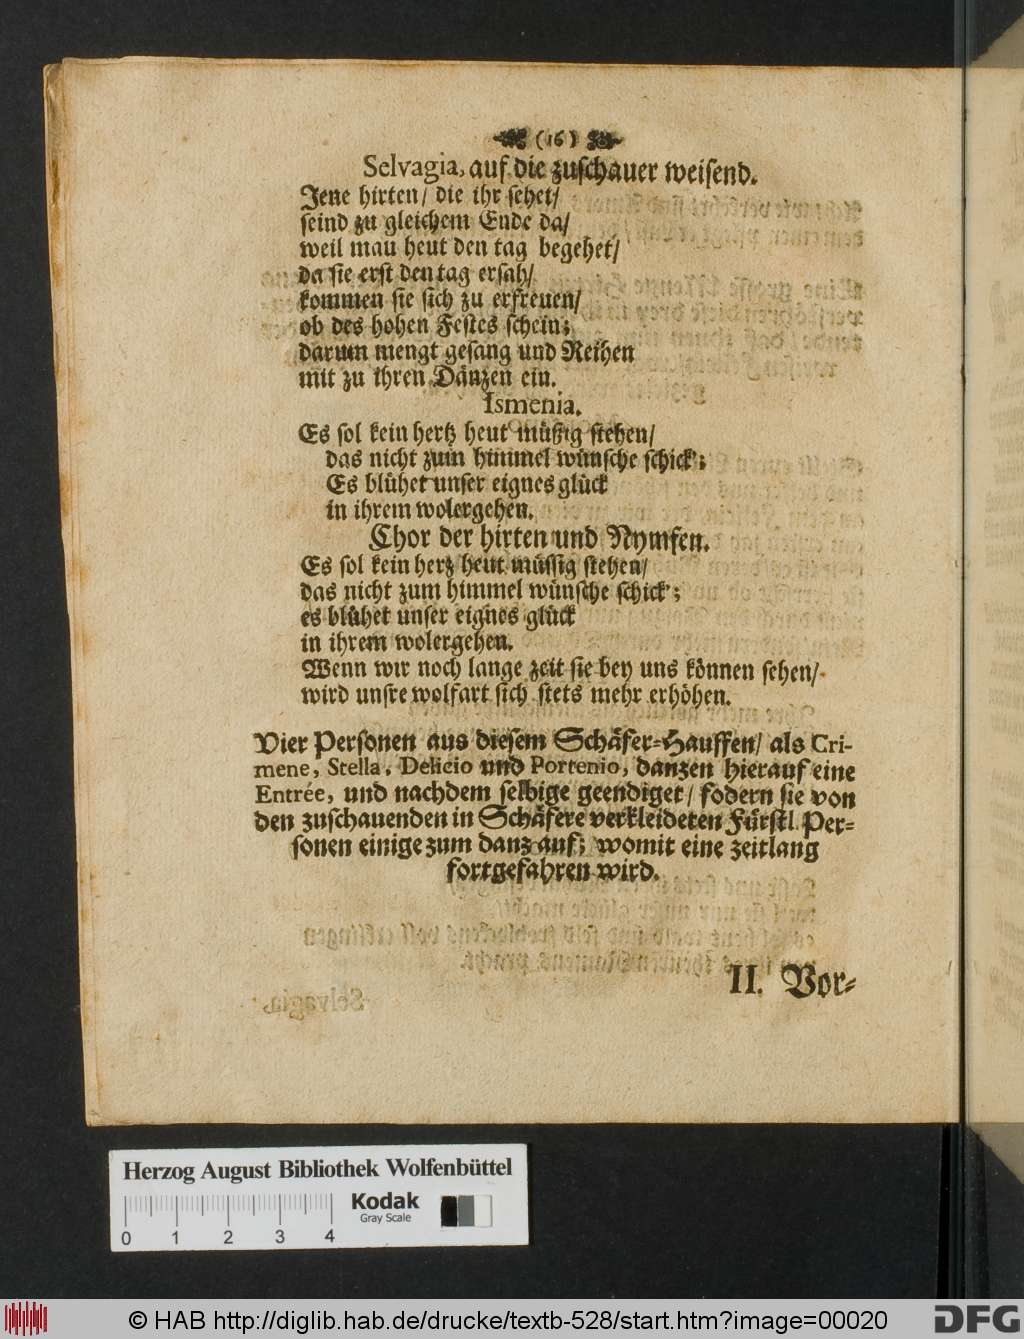 (16)
Selvagia, auf die zuschauer weisend.
Jene hirten/ die ihr sehet/
seind zu gleichem Ende da/
weil mau heut den tag begehet/
da sie erst den tag ersah/
kommen sie sich zu erfreuen/
ob des hohen Festes schein;
darum mengt gesang und Reihen
mit zu ihren Dänzen ein.
Ismenia.
Es sol kein hertz heut müßig stehen/
das nicht zum himmel wünsche schick';
Es blühet unser eignes glück
in ihrem wolergehen.
Chor der hirten und Nymfen.
Es sol kein herz heut müssig stehen/
das nicht zum himmel wünsche schick';
es blühet unser eignes glück
in ihrem wolergehen.
Wenn wir noch lange zeit sie bey uns können sehen/
wird unsre wolfart sich stets mehr erhöhen.
Vier Personen aus diesem Schäfer-Hauffen/ als Cri-
mene, Stella, Delicio und Portenio, danzen hierauf eine
Entrée, und nachdem selbige geendiget/ fodern sie von
den zuschauenden in Schäfere verkleideten Fürstl. Per-
sonen einige zum danz auf; womit eine zeitlang
fortgefahren wird.
II. Vor-
Herzog August Bibliothek Wolfenbüttel
Kodak
Gray Scale
0 1 2 3 4
© HAB http://diglib.hab.de/drucke/textb-528/start.htm?image=00020
DFG